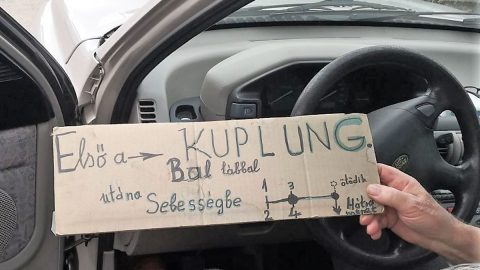 Első a → KUPLUNG.
Bal lábbal
utána Sebességbe
1 3 ötödik
2 4 Hátra
menet